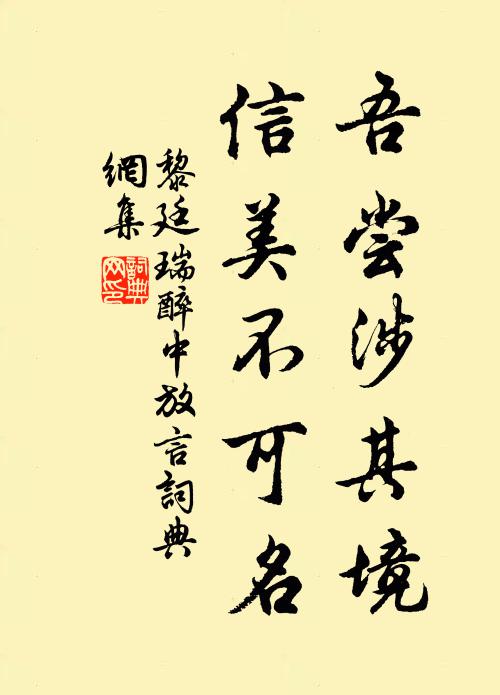 吾尝涉其境
信美不可名
黎廷瑞醉中放言詞典
網集
詞典
网印